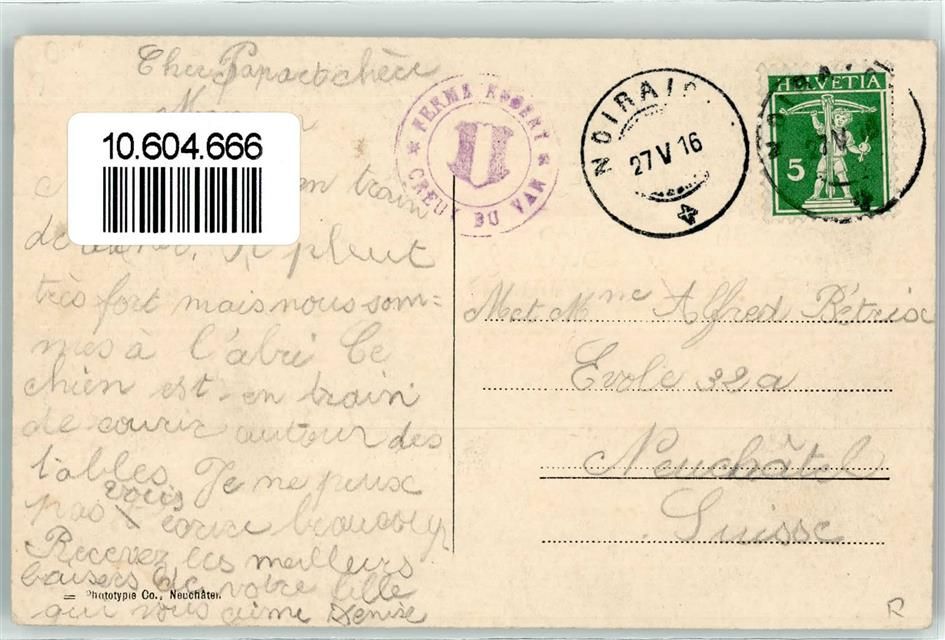 Cher Papa et chère
10.604.666
en train
de
Il pleut
très fort mais nous som=
mes à l'abri Ce
chien est en train
de courir autour des
tables Je ne peux
pas vous écrire beaucoup
Recevez les meilleurs
baisers de votre fille
qui vous aime Denise
Phototypie Co., Neuchâtel.
FERME ROBERT
CREUX DU VAN
NOIRAIG
27 V 16
HELVETIA
5
M et Mme Alfred Bétrix
Evole 32a
Neuchâtel
Suisse
R